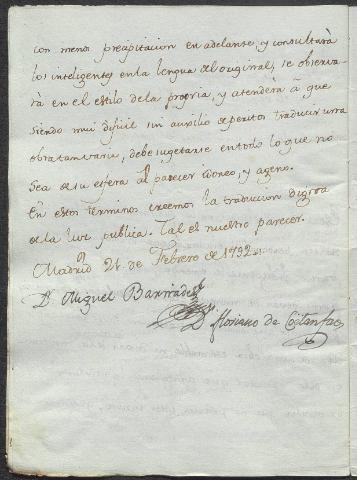 con menos precipitacion en adelante, y consultarà
los inteligentes en la lengua del original, se observa-
rà en el estilo de la propria, y atenderà à que
siendo mui dificil sin auxilio de peritos traducir una
obra tan varia, debe sugetarse en todo lo que no
sea de su esfera al parecer idoneo, y ageno.
En estos terminos creemos la traduccion digna
de la luz publica. Tal es nuestro parecer.
Madrid 21 de Febrero de 1792.
Dn. Miguel Barnades
Dn. Floriano de